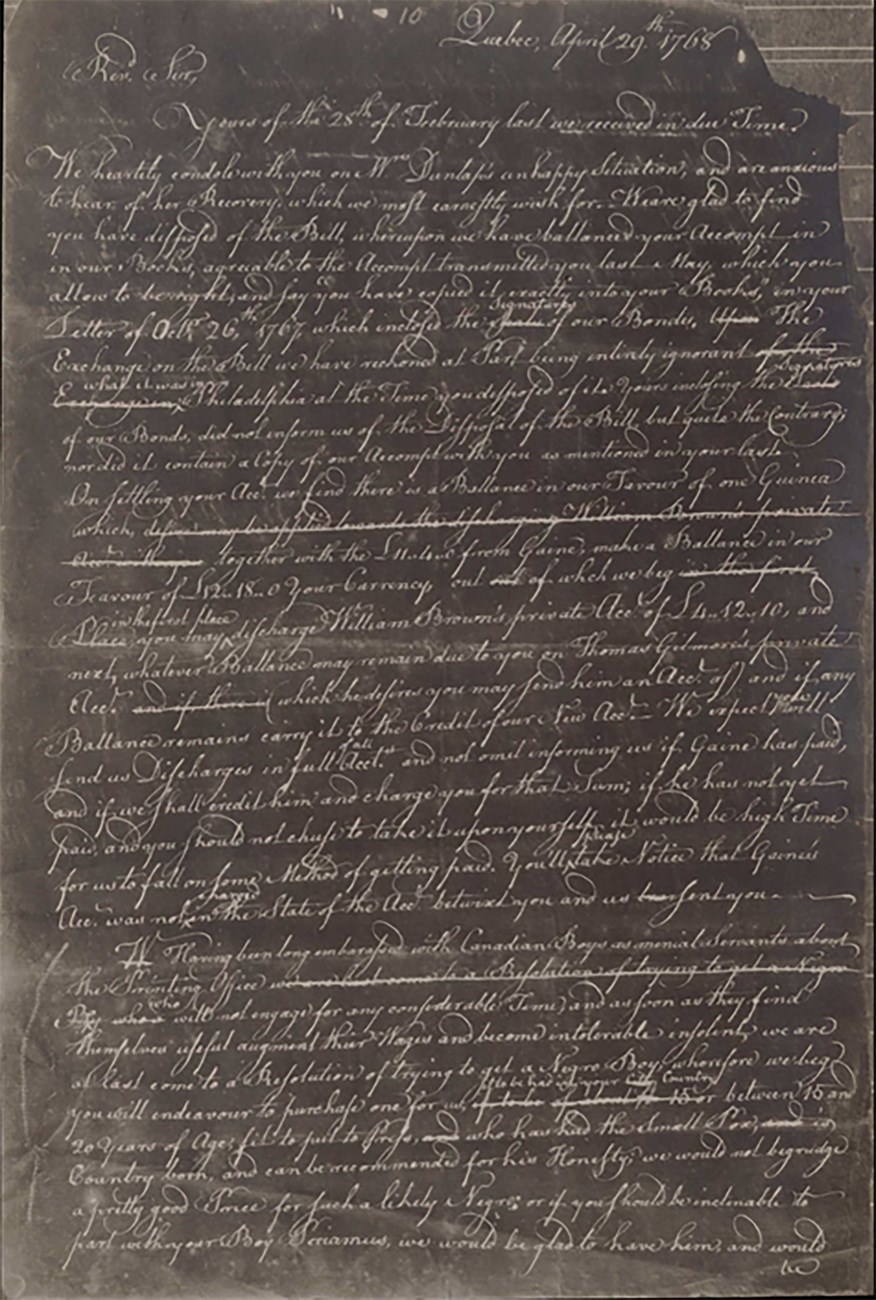 10
Quebec, April 29th. 1768
Revd. Sir,
Yours of the 28th of February last we received in due Time.
We heartily condole with you on Mrs Dunlap's unhappy Situation, and are anxious
to hear of her Recovery which we most earnestly wish for. We are glad to find
you have disposed of the Bill, whereupon we have ballanced your Accompt in
in our Books, agreeable to the Accompt transmitted you last May, which you
allow to be right, and say you have copied it exactly into your Books, in your
Signatures
Letter of Octr. 26th, 1767, which inclosed the of our Bonds. Upon The
Exchange on the Bill we have reckoned at Parr being intirely ignorant of the
what it was in Signatures
Exchange in Philadelphia at the Time you disposed of it. Yours inclosing the
of our Bonds, did not inform us of the Disposal of the Bill, but quite the Contrary;
nor did it contain a Copy of our Accompt with you as mentioned in your last.
On settling your Acct. we find there is a Ballance in our Favour of one Guinea
which, discharging William Brown's private
Acct. together with the from Gaine, make a Ballance in our
Favour of £12..18..0 Your Currency, out of which we beg in the first
in the first place
Place, you may discharge Wm. William Brown's private Acct. of £4..12..10, and
next, whatever Ballance may remain due to you on Thomas Gilmore's private
Acct. and if there (which he desires you may send him an Acct. of) and if any
Ballance remains carry it to the Credit of our New Acct. We expect you'll
of all
send us Discharges in full Accts. and not omit informing us if Gaine has paid,
and if we shall credit him and charge you for that Sum; if he has not yet
paid, and you should not chuse to take it upon yourself, it would be high Time
please
for us to fall on some Method of getting paid. You'll take Notice that Gaine's
Acct. was not in the State of the Acct. betwixt you and us sent you.
W Having been long embarassed with Canadian Boys as menial Servants about
the Printing Office we to a Resolution of trying to get a Negro
who
Boy who will not engage for any considerable Time) and as soon as they find
themselves useful augment their Wages and become intolerable insolent, we are
at last come to a Resolution of trying to get a Negro Boy, wherefore we beg
to be had in your Country
you will endeavour to purchase one for us, 15 or between 15 and
20 Years of Age, fit to put to Press, and who has had the Small Pox, and is
Country born, and can be recommended for his Honesty; we would not begrudge
a pretty good Price for such a likely Negro; or if you should be inclinable to
part with your Boy Priamus, we would be glad to have him, and would